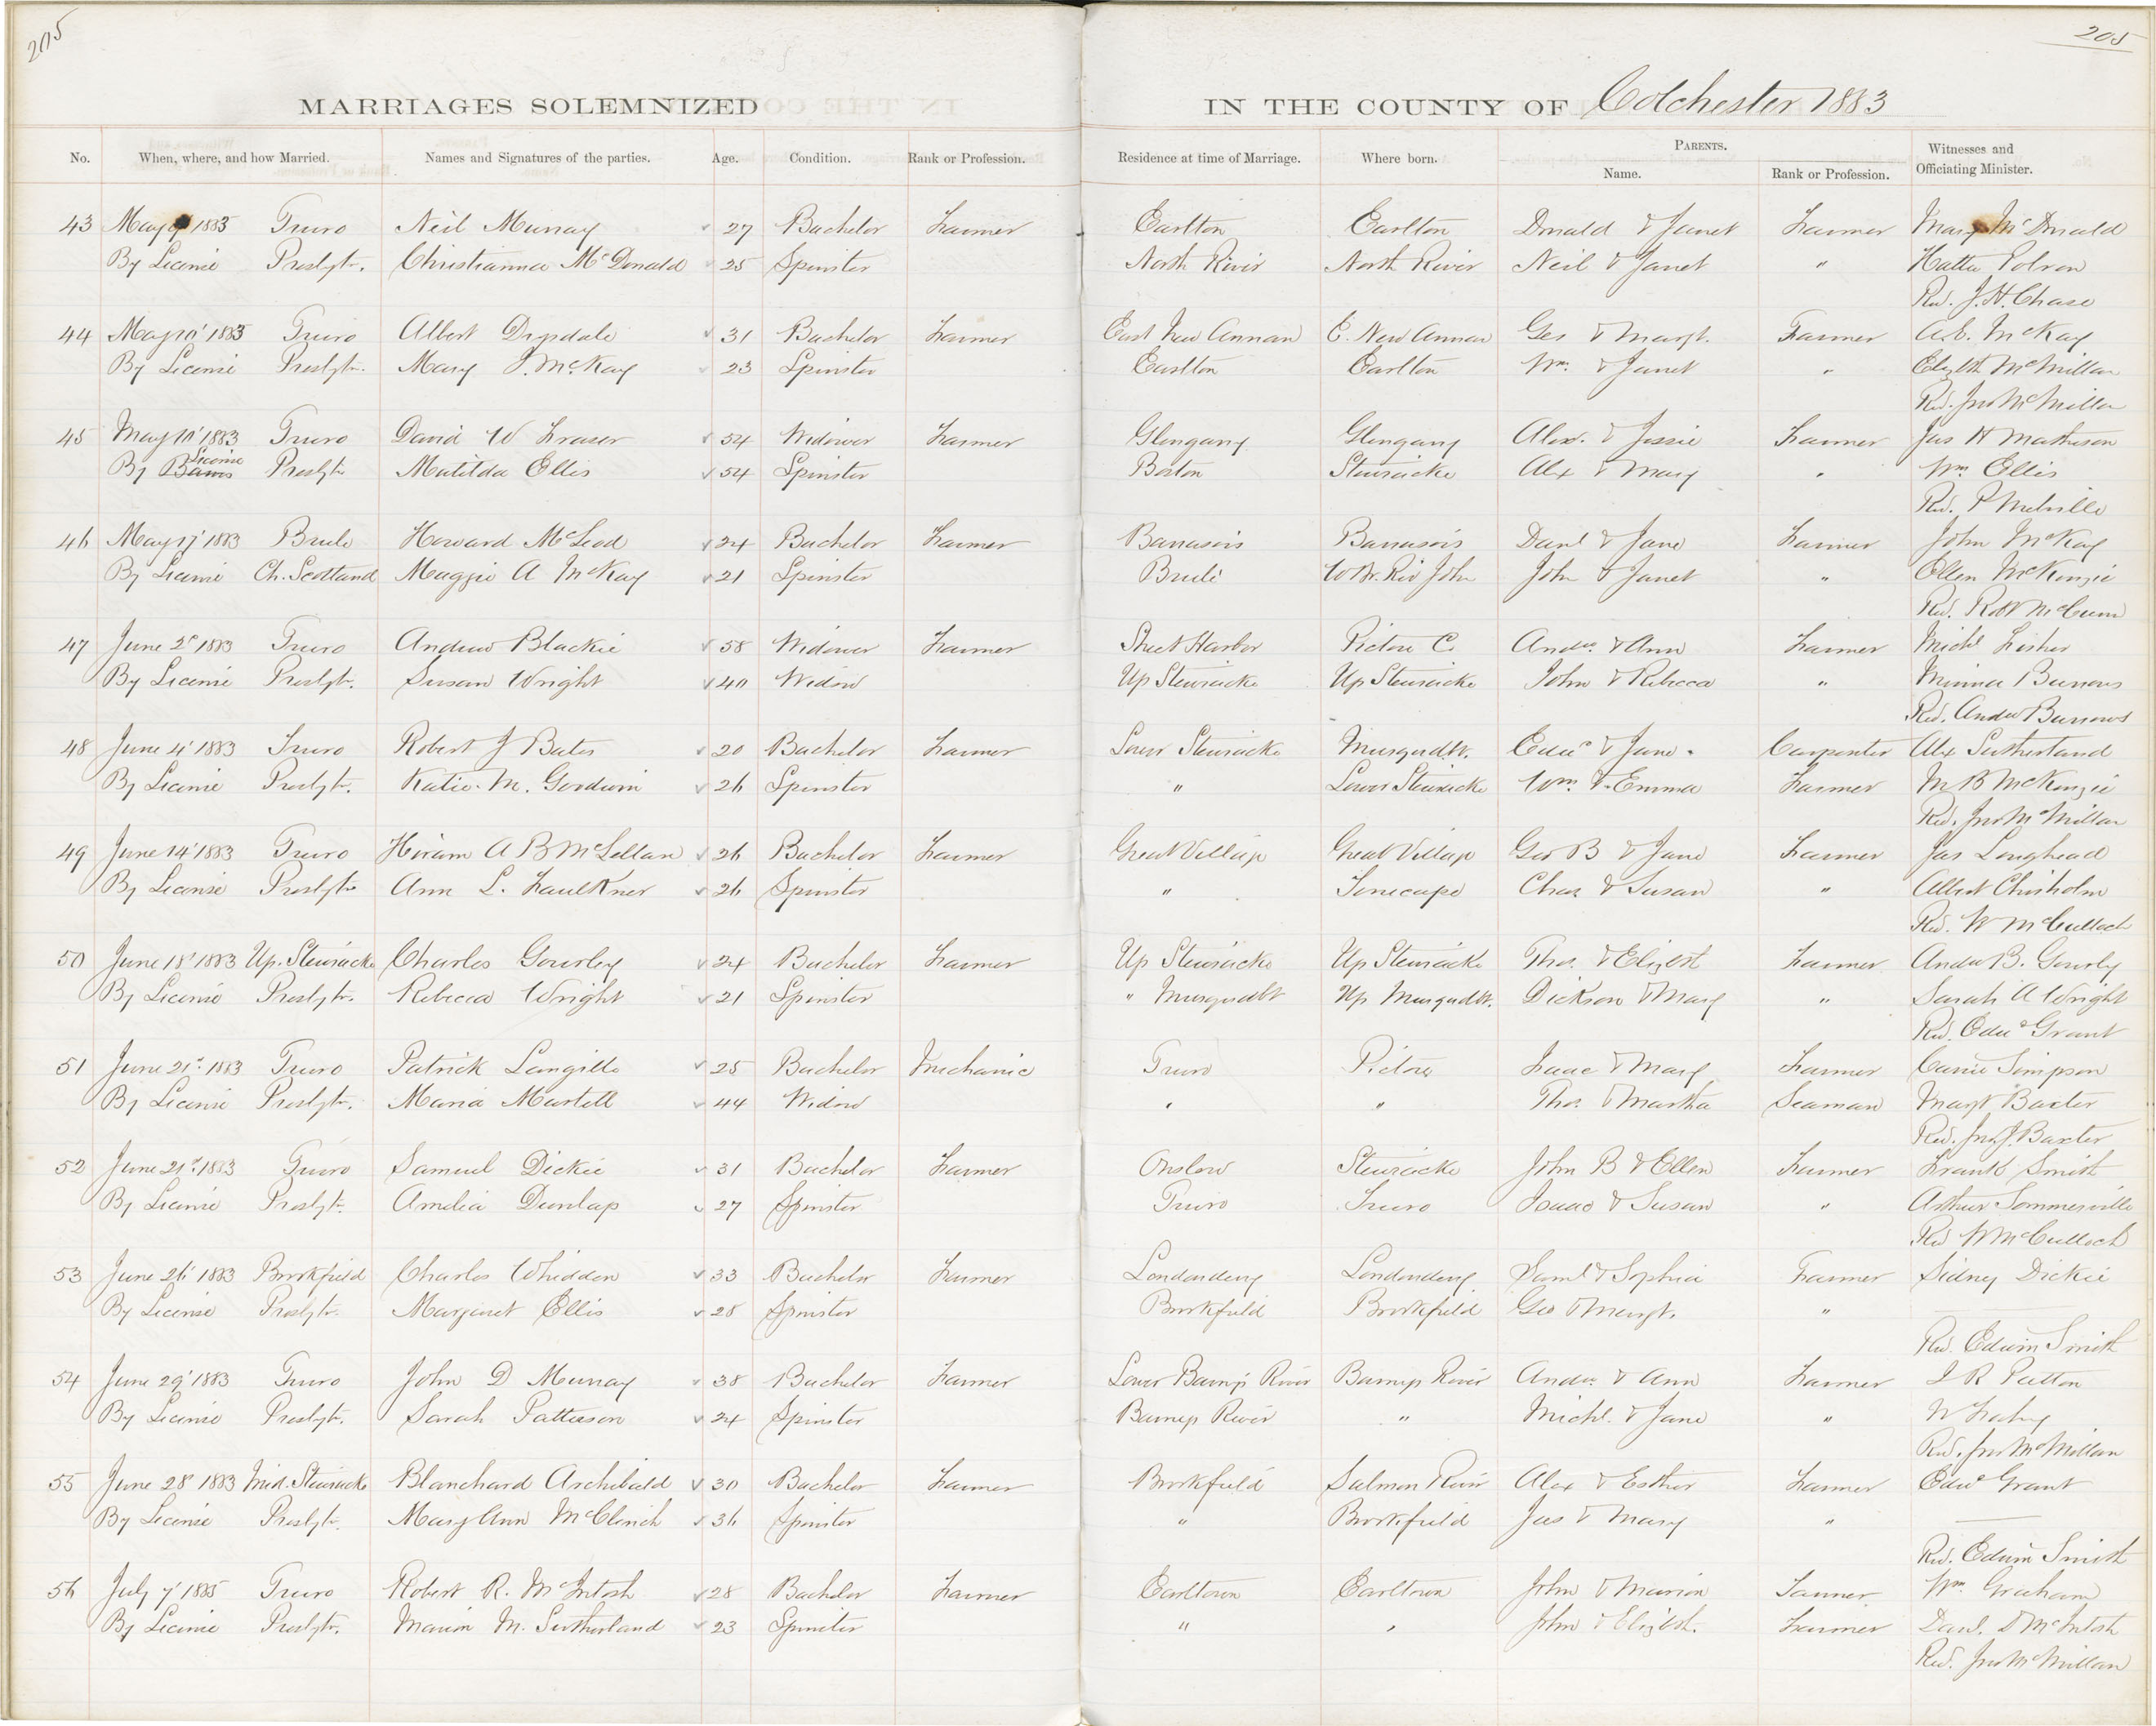 205
205
MARRIAGES SOLEMNIZED IN THE COUNTY OF Colchester 1883
No. When, where, and how Married. Names and Signatures of the parties. Age. Condition. Rank or Profession. Residence at time of Marriage. Where born. PARENTS. Name. Rank or Profession. Witnesses and Officiating Minister.
43 May 1883 Truro Neil Murray 27 Bachelor Farmer Earlton Earlton Donald & Janet Farmer Mary McDonald
By License Presbytn. Christianna McDonald 25 Spinster North River North River Neil & Janet " Hattie
Rev. J. H. Chase
44 May 10' 1883 Truro Albert Drysdale 31 Bachelor Farmer East New Annan E. New Annan Geo & Margt. Farmer A.C. McKay
By License Presbytn. Mary J. McKay 23 Spinster Earlton Earlton Wm. & Janet " Elizbth McMillan
Rev. Jno McMillan
45 May 10' 1883 Truro David W Fraser 54 Widower Farmer Glengarry Glengarry Alex. & Jessie Farmer Jas H Matheson
By Banns License Presbytn Matilda Ellis 54 Spinster Boston Stewiacke Alex & Mary " Wm Ellis
Rev. P Melville
46 May 17' 1883 Brule Howard McLeod 24 Bachelor Farmer Barrasois Barrasois Danl & Jane Farmer John McKay
By License Ch. Scotland Maggie A McKay 21 Spinster Brule W Br. Riv John John & Janet " Ellen McKenzie
Rev. Robt McCunn
47 June 2d 1883 Truro Andrew Blackie 58 Widower Farmer Sheet Harbor Pictou C. Andw. & Ann Farmer Michl Fisher
By License Presbytn. Susan Wright 40 Widow Up Stewiacke Up Stewiacke John & Rebecca " Minnie Burrows
Rev. Andw Burrows
48 June 4' 1883 Truro Robert J Bates 20 Bachelor Farmer Lower Stewiacke Musquodbt. Edwd & Jane Carpenter Alex Sutherland
By License Presbytn. Katie M. Goodwin 26 Spinster " Lower Stewiacke Wm. & Emma Farmer M B McKenzie
Rev. Jno McMillan
49 June 14' 1883 Truro Hiram A B McLellan 26 Bachelor Farmer Great Village Great Village Geo B & Jane Farmer Jas Loughead
By License Presbytn Ann L. Faulkner 26 Spinster " Tenecape Chas. & Susan " Albert Chisholm
Rev. W McCulloch
50 June 18' 1883 Up. Stewiacke Charles Gourley 24 Bachelor Farmer Up Stewiacke Up Stewiacke Thos. & Elizbt Farmer Andw B. Gourly
By License Presbytn. Rebecca Wright 21 Spinster " Musquodbt Up Musquodbt. Dickson & Mary " Sarah A Wright
Rev. Edwd Grant
51 June 21st 1883 Truro Patrick Langille 25 Bachelor Mechanic Truro Pictou Isaac & Mary Farmer Carrie Simpson
By License Presbytn. Maria Martell 44 Widow " " Thos. & Martha Seaman Margt Baxter
Rev. Jno J. Baxter
52 June 21st 1883 Truro Samuel Dickie 31 Bachelor Farmer Onslow Stewiacke John B & Ellen Farmer Frank Smith
By License Presbytn. Amelia Dunlap 27 Spinster Truro Truro Isaac & Susan " Arthur Sommerville
Rev W McCulloch
53 June 26' 1883 Brookfield Charles Whidden 33 Bachelor Farmer Londonderry Londonderry Saml & Sophia Farmer Sidney Dickie
By License Presbytn. Margaret Ellis 28 Spinster Brookfield Brookfield Geo & Margt. "
Rev. Edwin Smith
54 June 29' 1883 Truro John D Murray 38 Bachelor Farmer Lower Barnys River Barnys River Andw. & Ann Farmer I R Patton
By License Presbytn. Sarah Patterson 24 Spinster Barneys River " Michl. & Jane " W
Rev. Jno McMillan
55 June 28' 1883 Mid. Stewiacke Blanchard Archibald 30 Bachelor Farmer Brookfield Salmon River Alex & Esther Farmer Edwd Grant
By License Presbytn. Mary Ann McClinch 36 Spinster " Brookfield Jas & Mary "
Rev. Edwin Smith
56 July 7' 1885 Truro Robert R. McIntosh 28 Bachelor Farmer Earltown Earltown John & Marion Farmer Wm Graham
By License Presbytn. Marion M. Sutherland 23 Spinster " " John & Elizbth. Farmer Danl. D McIntosh
Rev. Jno McMillan